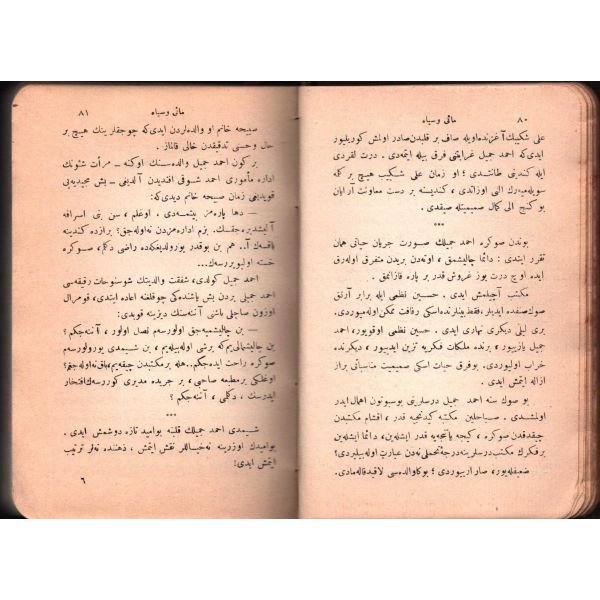 ٨٠
مائی وسیاه
علی شكیبك آغزنده اویله صاف بر قلبدن صادر اولمش كوریلیور
ایدی كه احمد جمیل غرابتنی فرق بیله ایتمه‌دی. درت لقردی
ایله كندینی طانتدی؛ او زمان علی شكیب هیچ بر كله
سویله‌میه‌رك الی اوزاتدی، كندیسنه بر دست معاونت آرایان
بو كنج الی كمال صمیمیتله صیقدی.
***
بوندن صوكره احمد جمیلك صورت جریان حیاتی همان
تقرر ایتدی: دائما چالیشمق، اوته‌دن بریدن متفرق اوله‌رق
ایده اوچ درت یوز غروش قدر بر پاره قازانمق.
مكتب آچیلمش ایدی. حسین نظمی ایله برابر آرتق
صوك صنفده ایدیلر، فقط بینلرنده كی اسكی رفاقت ممكن اوله‌میوردی،
بری لیلی دیكری نهاری ایدی. حسین نظمی اوقویور، احمد
جمیل یازییور، برنده ملكات فكریه تزین ایدییور، دیكرنده
خراب اولیوردی. بوفرق حیات اسكی صمیمیت مناسباتی براز
ازاله ایتمش ایدی.
بو صوك سنه احمد جمیل درسلرینی بوسبوتون اهمال ایدر
اولمشدی. صباحلین مكتبه كیدنجیه قدر، اقشام مكتبدن
چیقدقدن صوكره، كیجه یاتنجه‌یه قدر ایشله‌ین، دائما ایشله‌ین
بر فكرك مكتب درسلرینه درجهٔ تحملی نه‌دن عبارت اوله‌بیلیردی؟
ضعیفله‌یور، صارارییوردی؛ بوكا والده‌سی لاقید قاله‌مادی.
٨١
مائی وسیاه
صبیحه خانم او والده‌لردن ایدی كه چوجقلرینك هیچ بر
حال وحسی تدقیقدن خالی قالماز.
بر كون احمد جمیل والده‌سنك اوكنه — مرآت شئونك
اداره مأموری احمد شوقی افندیدن آلدیغی — بش مجیدیه‌یی
قویدیغی زمان صبیحه خانم دیدی كه:
— دها پاره‌مز بیتمه‌دی، اوغلم، سن بنی اسرافه
آلیشدیره‌جقسك. بزم اداره‌مزدن نه اوله‌جق؟ برازده كندینه
باقسه‌ك آ.. هم بن بوقدر یورولدیغكده راضی دكلم، صوكره
خسته اولیویررسك...
احمد جمیل كولدی، شفقت والدیتك شو سنوحات رقیقه‌سی
احمد جمیلی بردن بش یاشنده كی چوقلغنه اعاده ایتدی، قومرال
اوزون صاچلی باشنی آننه‌سنك دیزینه قویدی:
— بن چالیشمیه‌جق اولورسه‌م نصل اولور، آننه‌جكم؟
صوكره راحت ایده‌جكم.. هله بر مكتبدن چیقه‌یم، باق نه اوله‌جق؟
اوغلكی بر مطبعه صاحبی، بر جریده مدیری كوررسه‌ك افتخار
ایدرسك، دكلمی، آننه‌جكم؟
***
شیمدی احمد جمیلك قلبنه بوامید تازه دوشمش ایدی.
بوامیدك اوزرینه نه خیاللر نقش ایتمش، ذهننده نه‌لر ترتیب
ایتمش ایدی!
٦